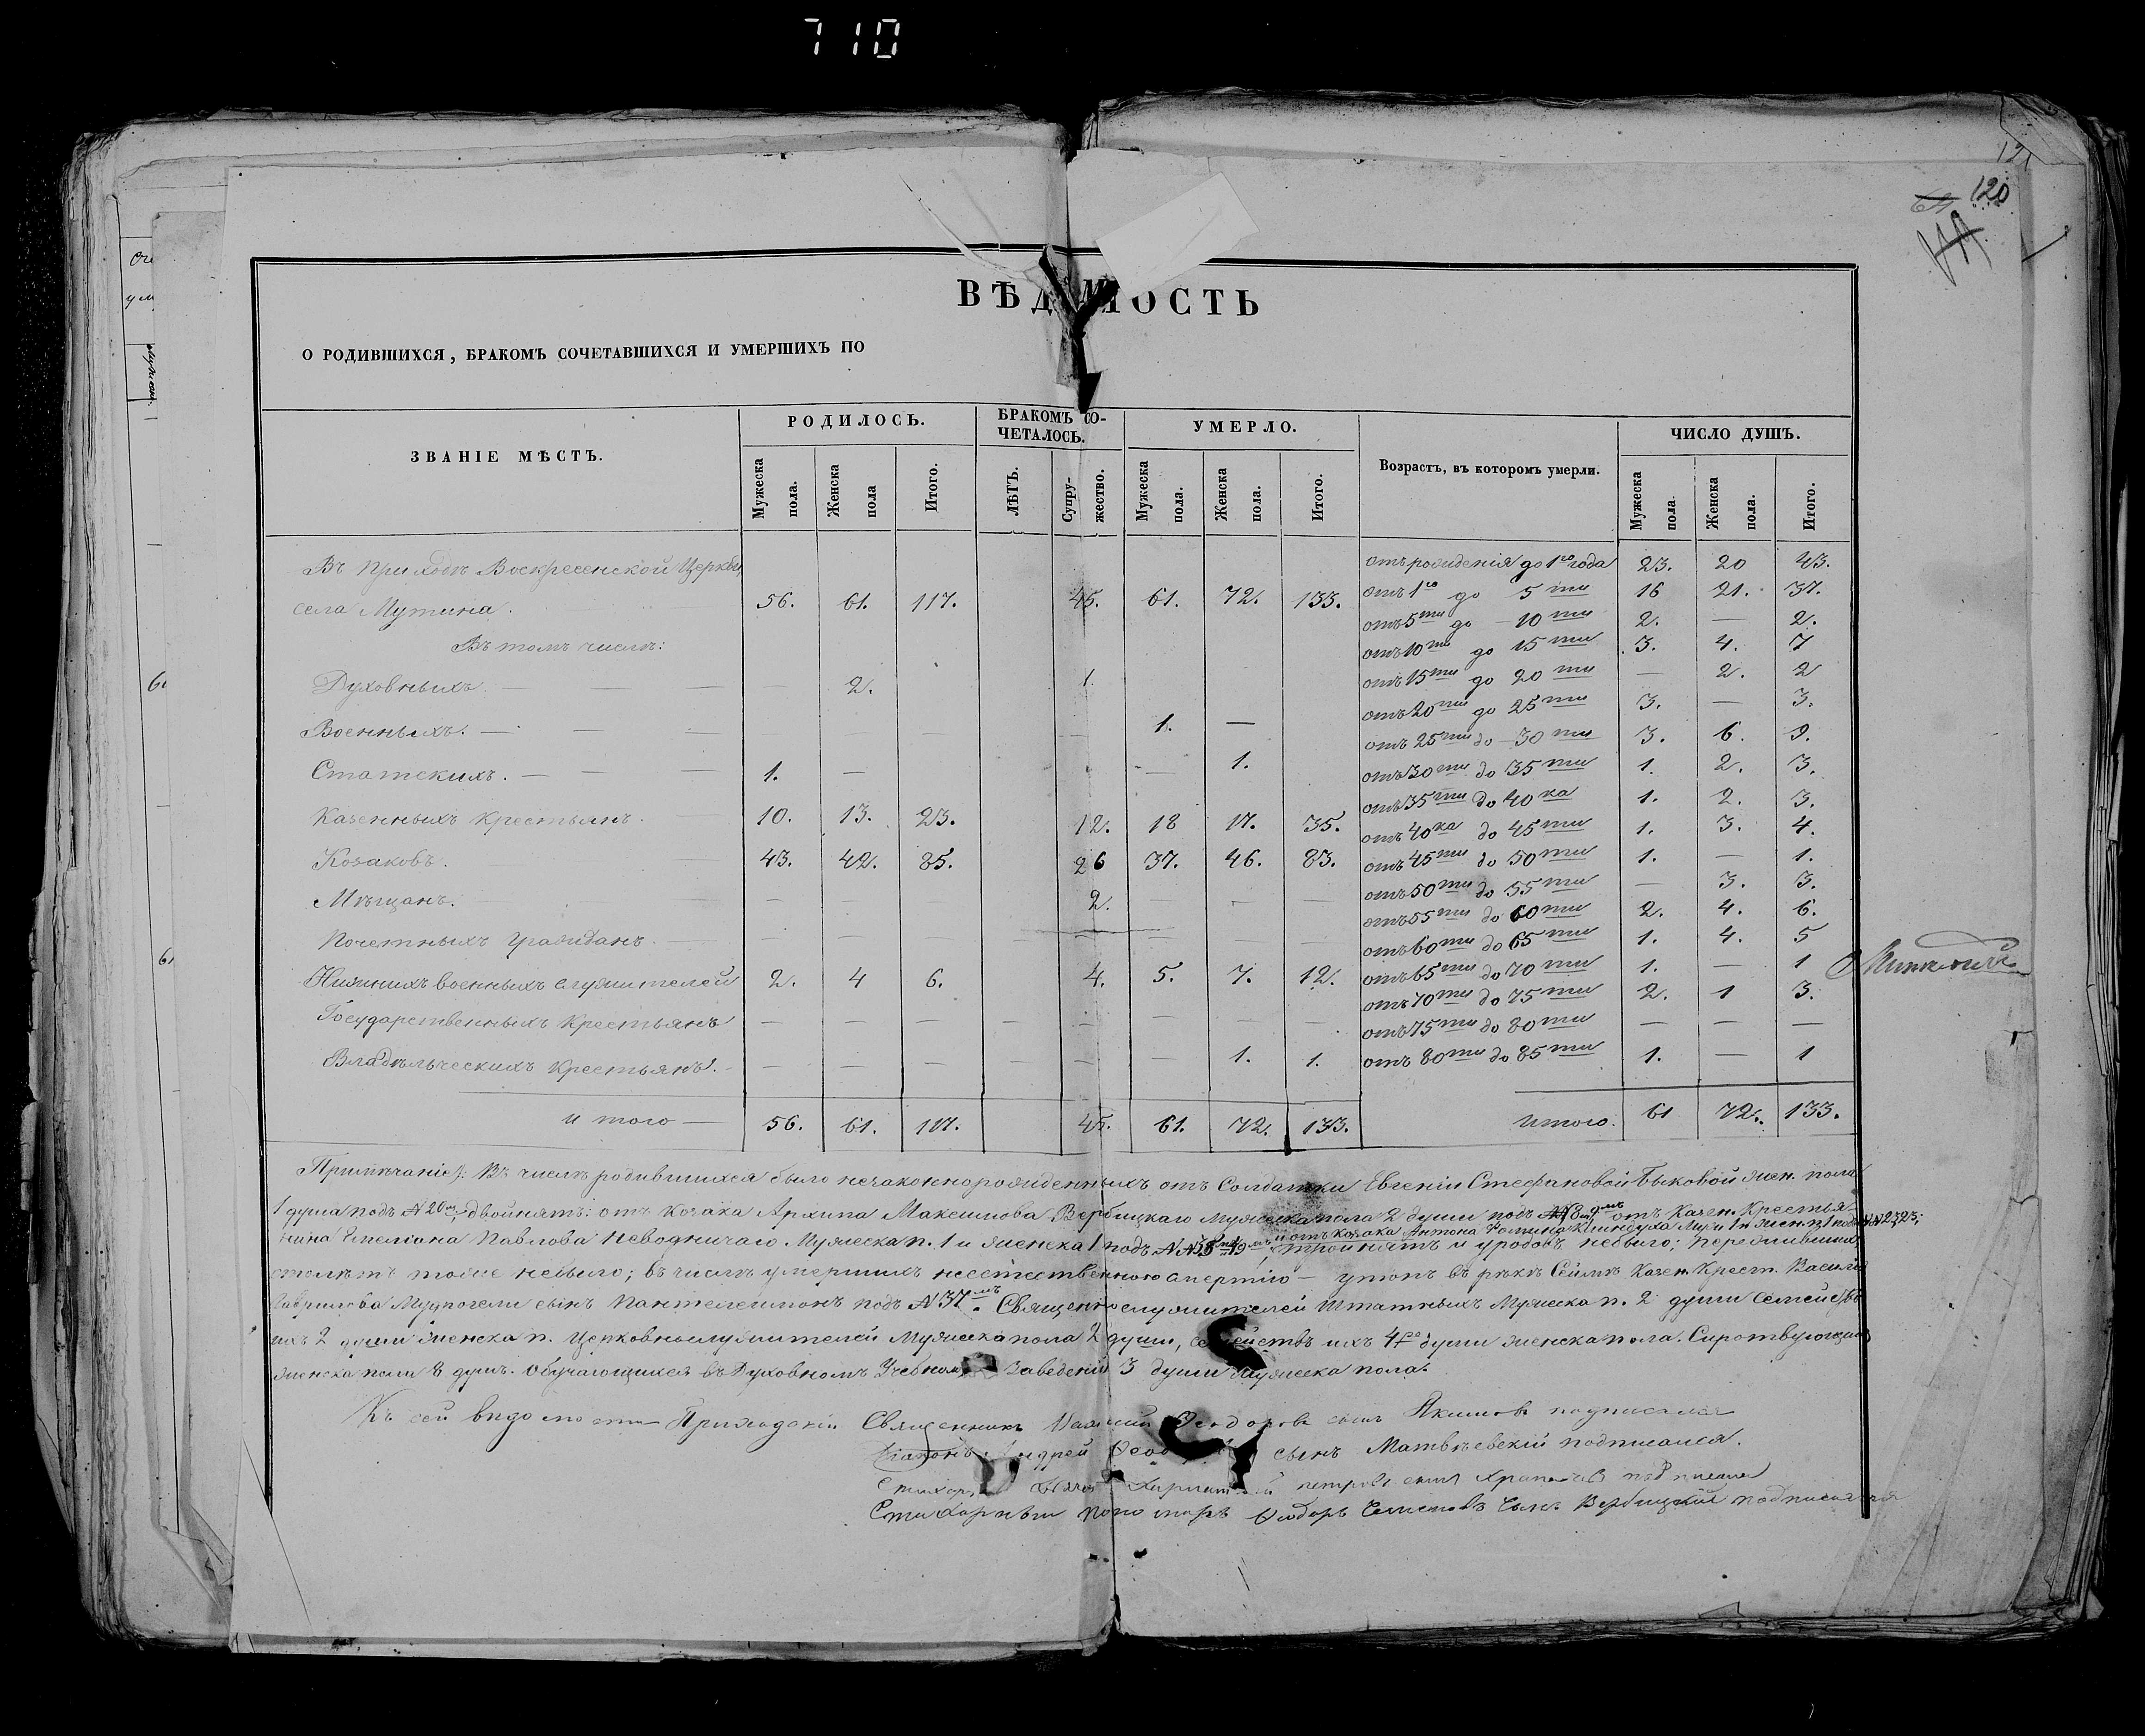 710
120
ВѢДОМОСТЬ
О РОДИВШИХСЯ, БРАКОМЪ СОЧЕТАВШИХСЯ И УМЕРШИХЪ ПО
ЗВАНІЕ МѢСТЪ. РОДИЛОСЬ. БРАКОМЪ СО-ЧЕТАЛОСЬ. УМЕРЛО. Возрастъ, въ которомъ умерли. ЧИСЛО ДУШЪ.
Мужеска пола. Женска пола Итого. ЛѢТЪ. Супру-жество. Мужеска пола. Женска пола. Итого. Мужеска пола. Женска пола. Итого.
Въ приходѣ Воскресенской Церкви,
села Мутина. 56. 61. 117. 45. 61. 72. 133.
Въ томъ числѣ:
Духовныхъ. — 2. 1.
Военныхъ. — — — 1. —
Статскихъ. — — — 1. — — 1.
Казенныхъ Крестьянъ. 10. 13. 23. 12. 18 17. 35.
Козаковъ. 43. 42. 85. 26 37. 46. 83.
Мѣщанъ. — — — 2. — — —
Почетныхъ Гражданъ. — — — — — —
Нижнихъ военныхъ служителей 2. 4 6. 4. 5. 7. 12.
Государственныхъ Крестьянъ — — — — — — — —
Владѣльческихъ Крестьянъ. — — — — — — 1. 1.
и того — 56. 61. 117. 45. 61. 72. 133.
отъ рожденія до 1го года 23. 20 43.
отъ 1го до 5ти 16 21. 37.
отъ 5ти до 10ти 2. — 2.
отъ 10ти до 15ти 3. 4. 7
отъ 15ти до 20ти — 2. 2
отъ 20ти до 25ти 3. — 3.
отъ 25ти до 30ти 3. 6. 9.
отъ 30ти до 35ти 1. 2. 3.
отъ 35ти до 40ка 1. 2. 3.
отъ 40ка до 45ти 1. 3. 4.
отъ 45ти до 50ти 1. — 1.
отъ 50ти до 55ти — 3. 3.
отъ 55ти до 60ти 2. 4. 6.
отъ 60ти до 65ти 1. 4. 5
отъ 65ти до 70ти 1. — 1
отъ 70ти до 75ти 2. 1 3.
отъ 75ти до 80ти — — —
отъ 80ти до 85ти 1. — 1
Итого. 61 72. 133.
Примѣчаніе: Въ числѣ родившихся было незаконнорожденныхъ отъ Солдатки Евгеніи Стефановой Быковой женс. пола
1 душа подъ № 20м, двойнятъ: отъ козака Архипа Максимова Вербицкаго мужеска пола 2 души подъ отъ Казен. Крестья-
и отъ козака Антона Фомина Муж. 1 и женс. п. 1 подъ
нина Емеліана Павлова Неводничаго. Мужеска п. 1 и женска 1 подъ тройнятъ и уродовъ небыло; пережившихъ
столѣтъ тоже небыло; въ числѣ умершихъ неестественною смертію — утопъ въ рѣкѣ Сеймѣ Казен. Крест. Василія
Гаврилова сынъ Пантелеимонъ подъ № 37мъ. Священнослужителей штатныхъ Мужеска п. 2 души семействъ
ихъ 2 души женска п. Церковнослужителей Мужеска пола 2 души, семействъ ихъ 4 души женска пола. Сиротвующихъ
женска пола 8 душъ. Обучающихся въ Духовномъ Учебномъ Заведеніи 3 души мужеска пола.
Къ сей вѣдомости Приходскій Священникъ Феодоровъ сынъ Якимовъ подписался
Діаконъ Андрей сынъ Матвѣевскій подписался.
Петровъ сынъ подписался
Стихарный пономарь Федоръ сынъ Вербицкій подписался